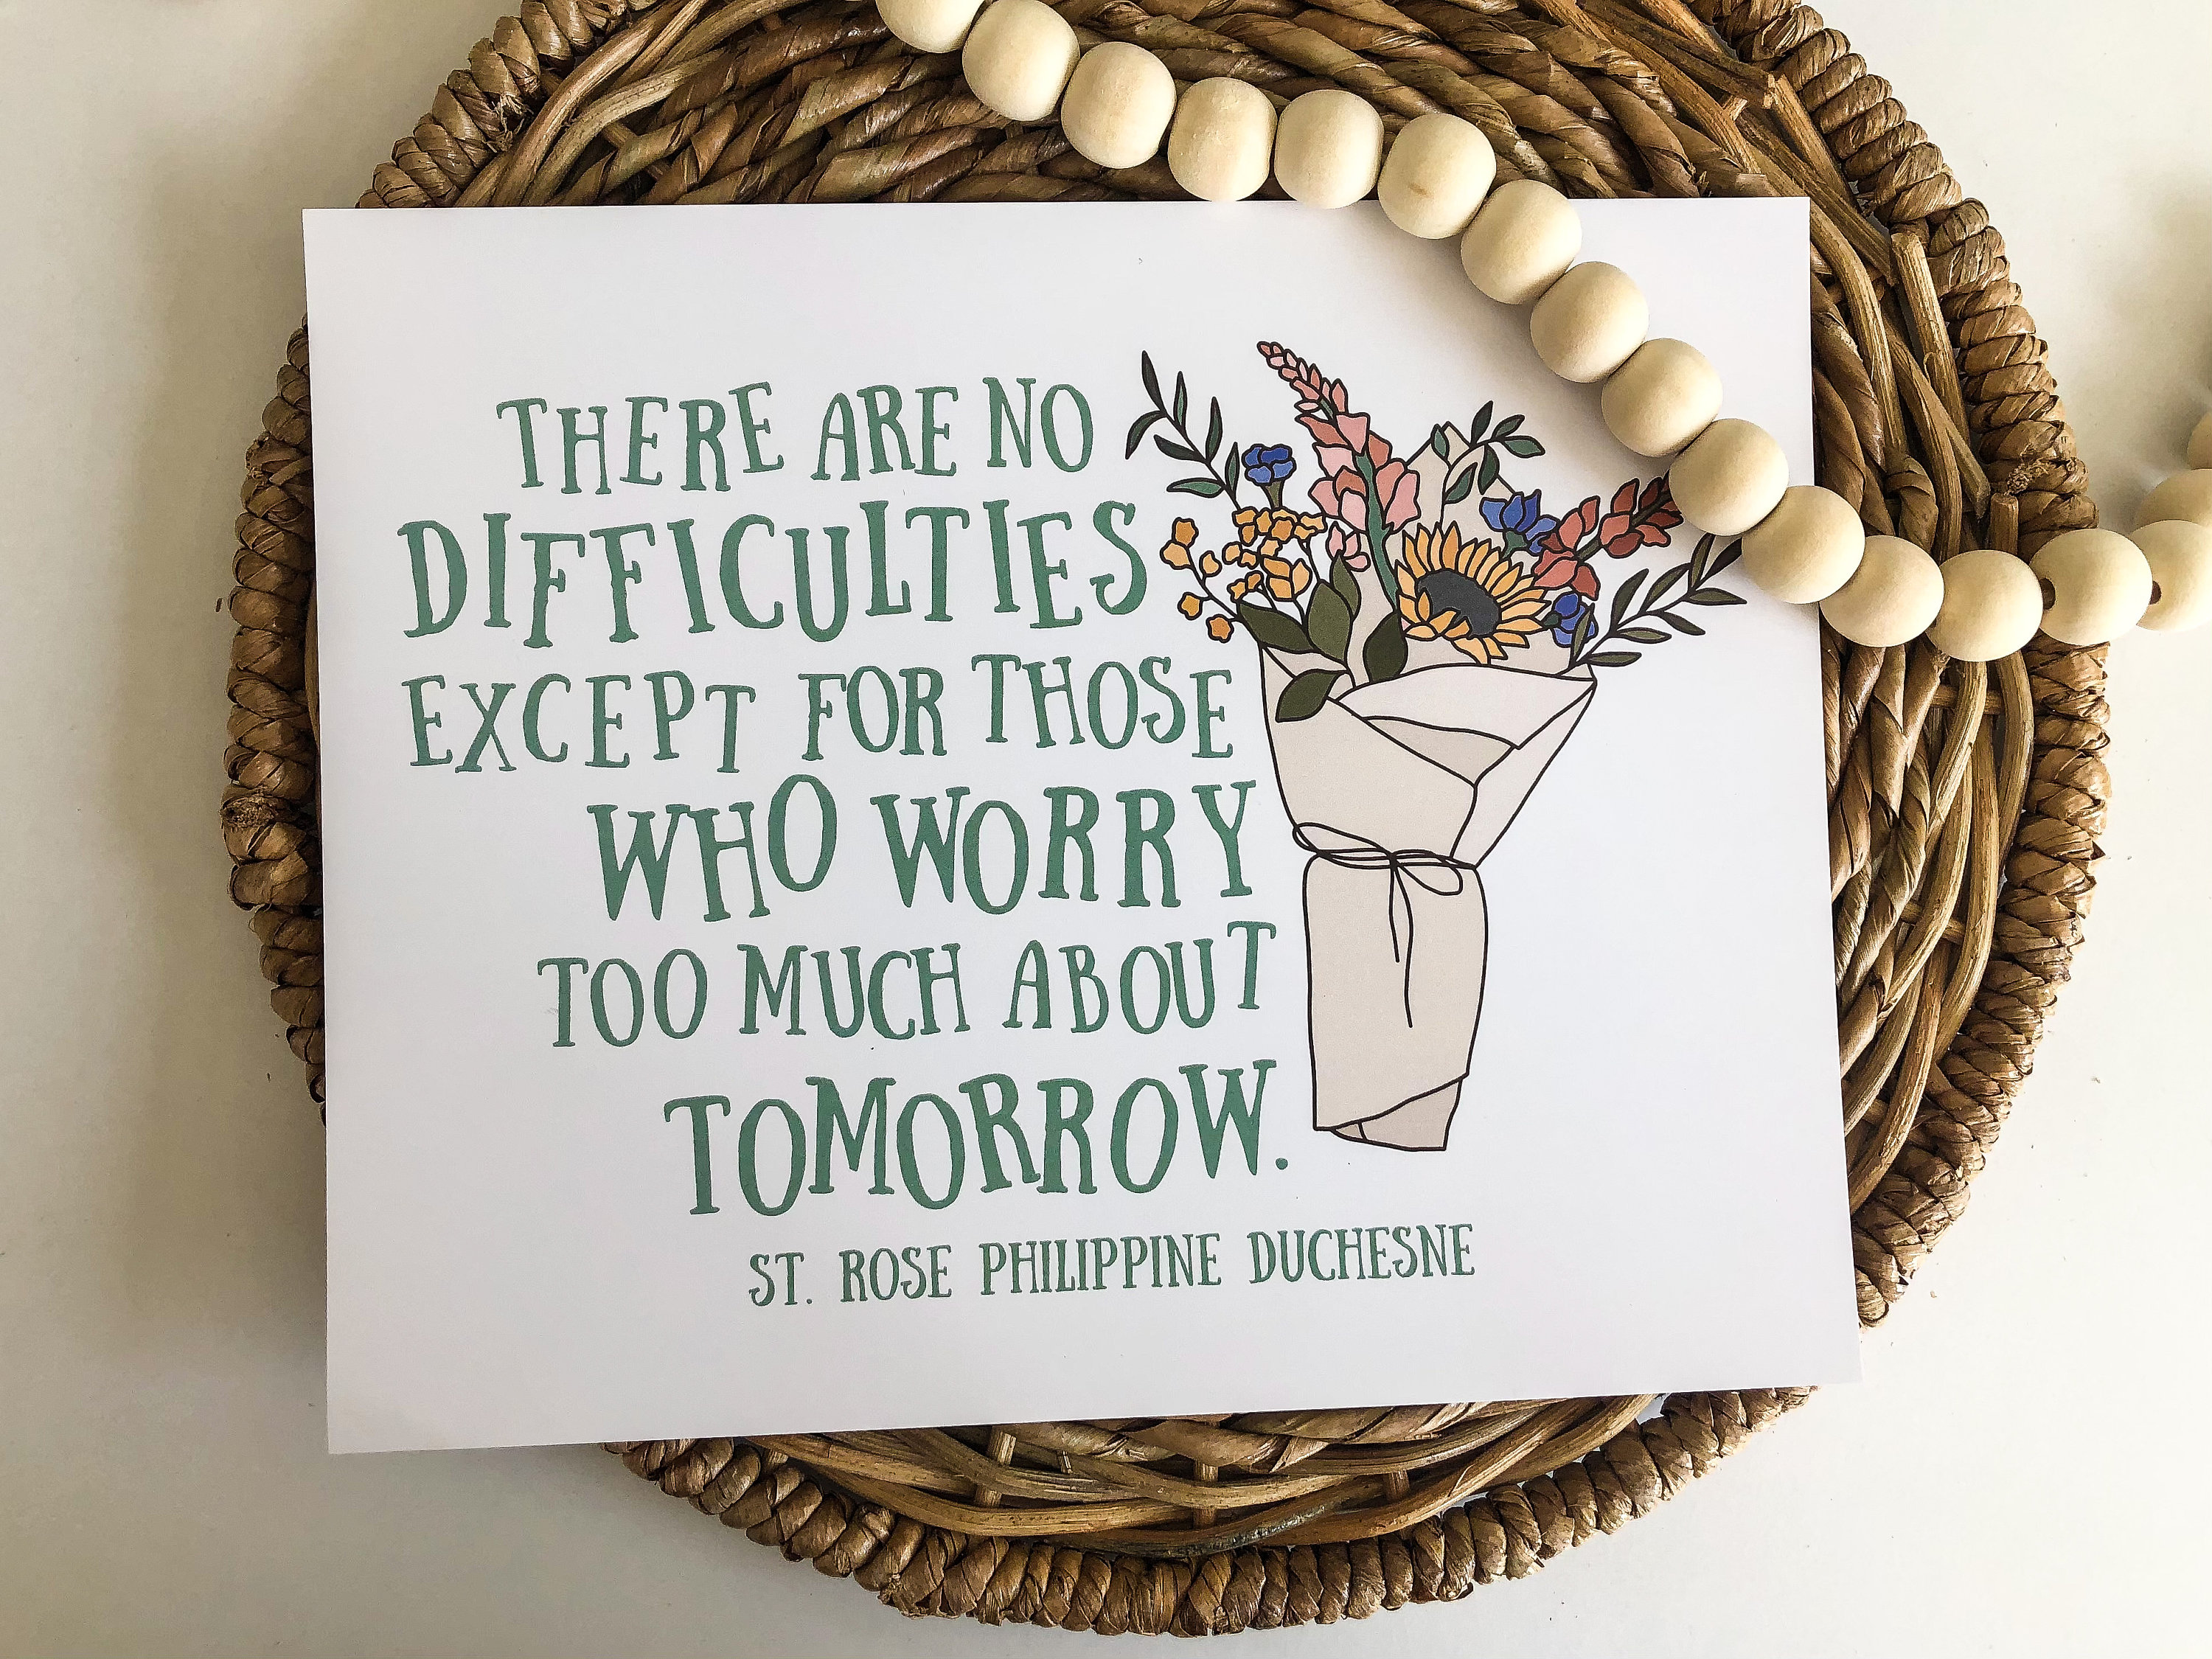 THERE ARE NO
DIFFICULTIES
EXCEPT FOR THOSE
WHO WORRY
TOO MUCH ABOUT
TOMORROW.
ST. ROSE PHILIPPINE DUCHESNE